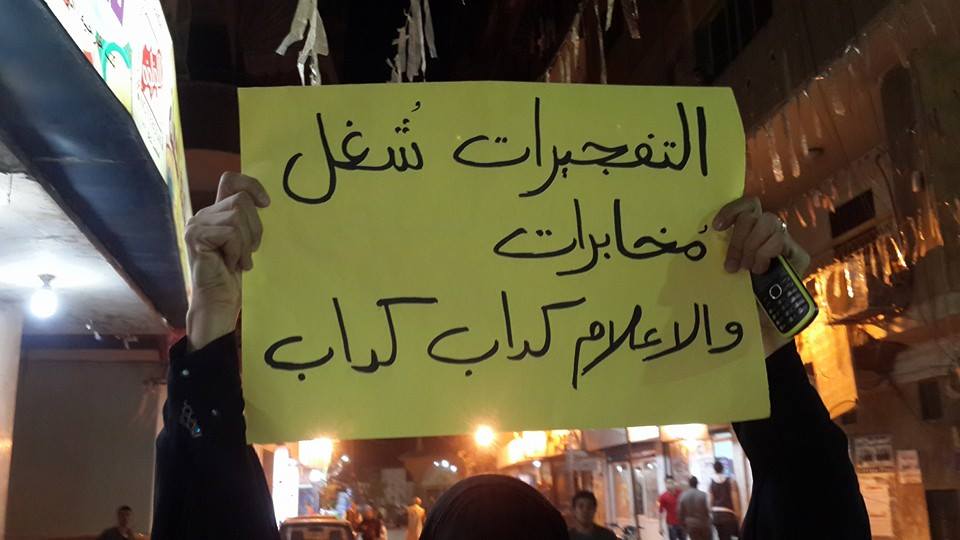 التفجيرات شُغل
مُخابرات
والاعلام كداب كداب